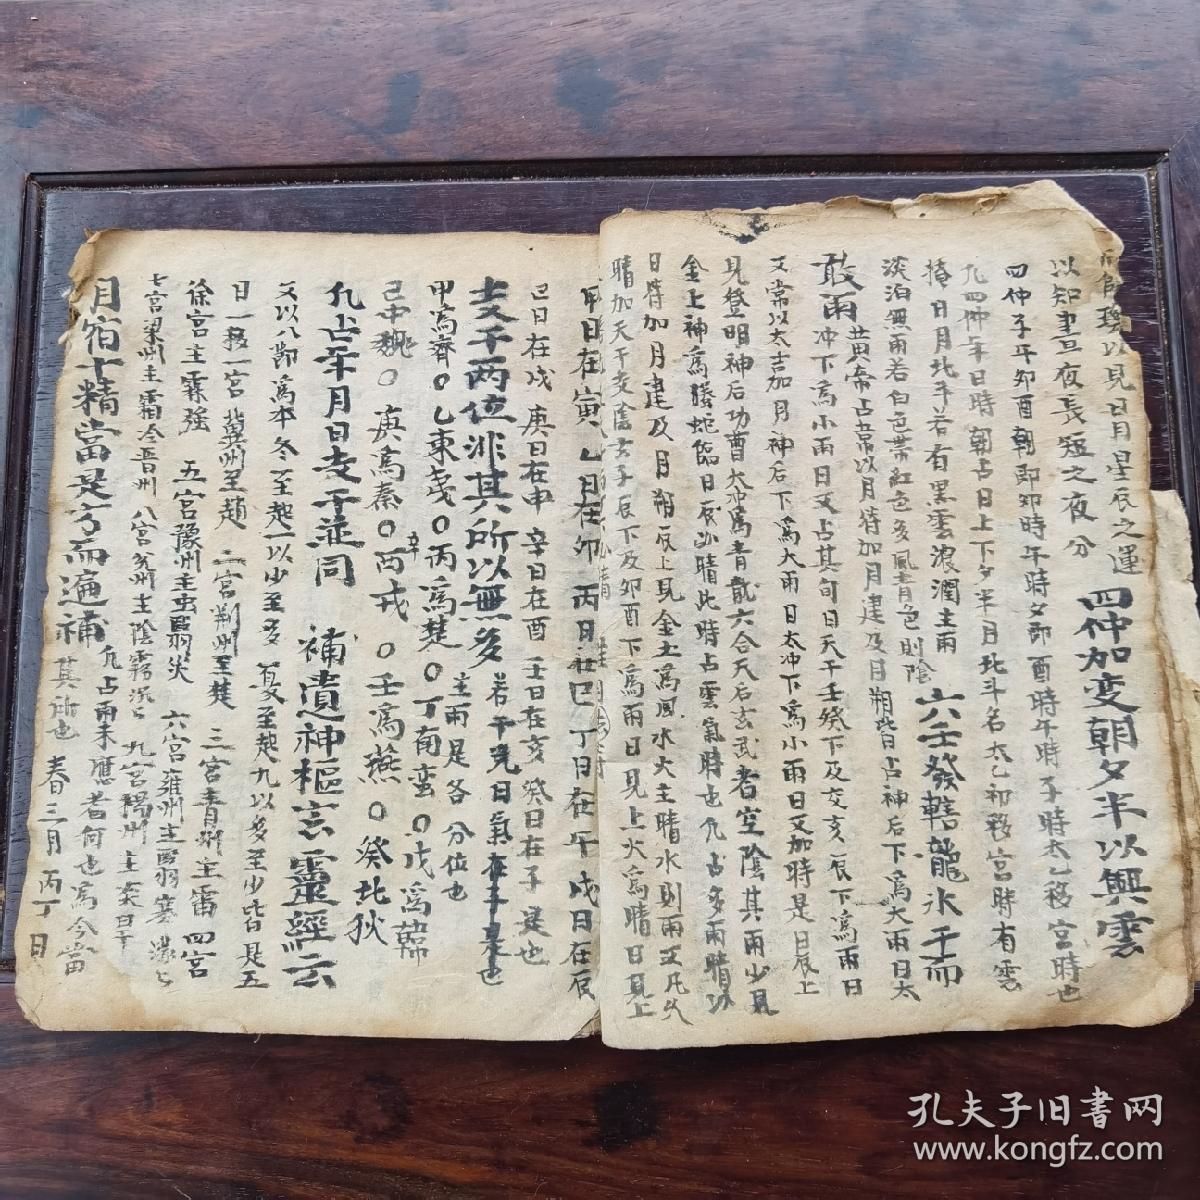 以見日月星辰之運　四仲加变朝夕半以興雲
以知晝夜長短之夜分
四仲子午卯酉朝即卯時午時夕即酉時午時子時太乙移宮時也
凢四仲年日時朝占日上下夕半月北斗名太乙初移宮時有雲
掩日月北斗若有黑雲濃潤主雨　六壬發轄龍水干而
淡泊無雨若白色帶紅色多風青色則陰
敢雨　黄帝占常以月符加月建及月朔皆占神后下為大雨日太
冲下為小雨日又占其旬日天干壬癸下及交亥辰下為雨日
又常以太吉加月神后下為大雨日太冲下為小雨日又加時是日辰上
見登明神后功曹太冲為青龍六合天后玄武者空陰其雨少見
金上神為螣蛇臨日辰必晴此時占雲氣時也凢占多雨晴以
日符加月建及月朔辰上見金土為風水火主晴水則雨又凡久
晴加天干支陰亥子辰下及卯酉下為雨日見上火為晴日見上
甲日在寅乙日在卯丙日在巳丁日在午戊日在辰
己日在戌庚日在申辛日在酉壬日在亥癸日在子是也
支干两位非其所以無多　若干克日氣在子是也
主雨是各分位也
甲為齊〇乙東夷〇丙為楚〇丁南蛮〇戊為韓
己中魏〇庚為秦〇辛西戎〇壬為燕〇癸北狄
凢占年月日支干並同　補遺神樞玄靈經云
又以八節為本冬至起一以少至多夏至起九以多至少皆是五
日一移一宮冀州主趙　二宮荆州主楚　三宮青州主雷　四宮
徐宮主霖強　五宮豫州主虫　六宮雍州主
七宮梁州主霜冷晋州　八宮兖州主陰霧　九宮揚州主
月宿十精當是方而通補　凢占雨未應者何也為今當
其所也　春三月丙丁日
孔夫子旧書网
www.kongfz.com